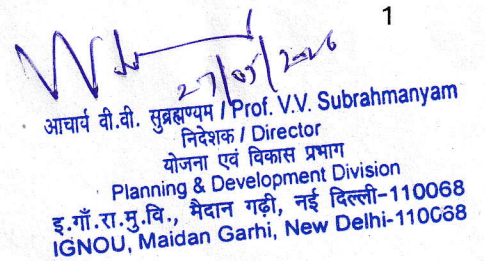 1
27/05/2026
आचार्य वी.वी. सुब्रह्मण्यम / Prof. V.V. Subrahmanyam
निदेशक / Director
योजना एवं विकास प्रभाग
Planning & Development Division
इ.गाँ.रा.मु.वि., मैदान गढ़ी, नई दिल्ली-110068
IGNOU, Maidan Garhi, New Delhi-110068